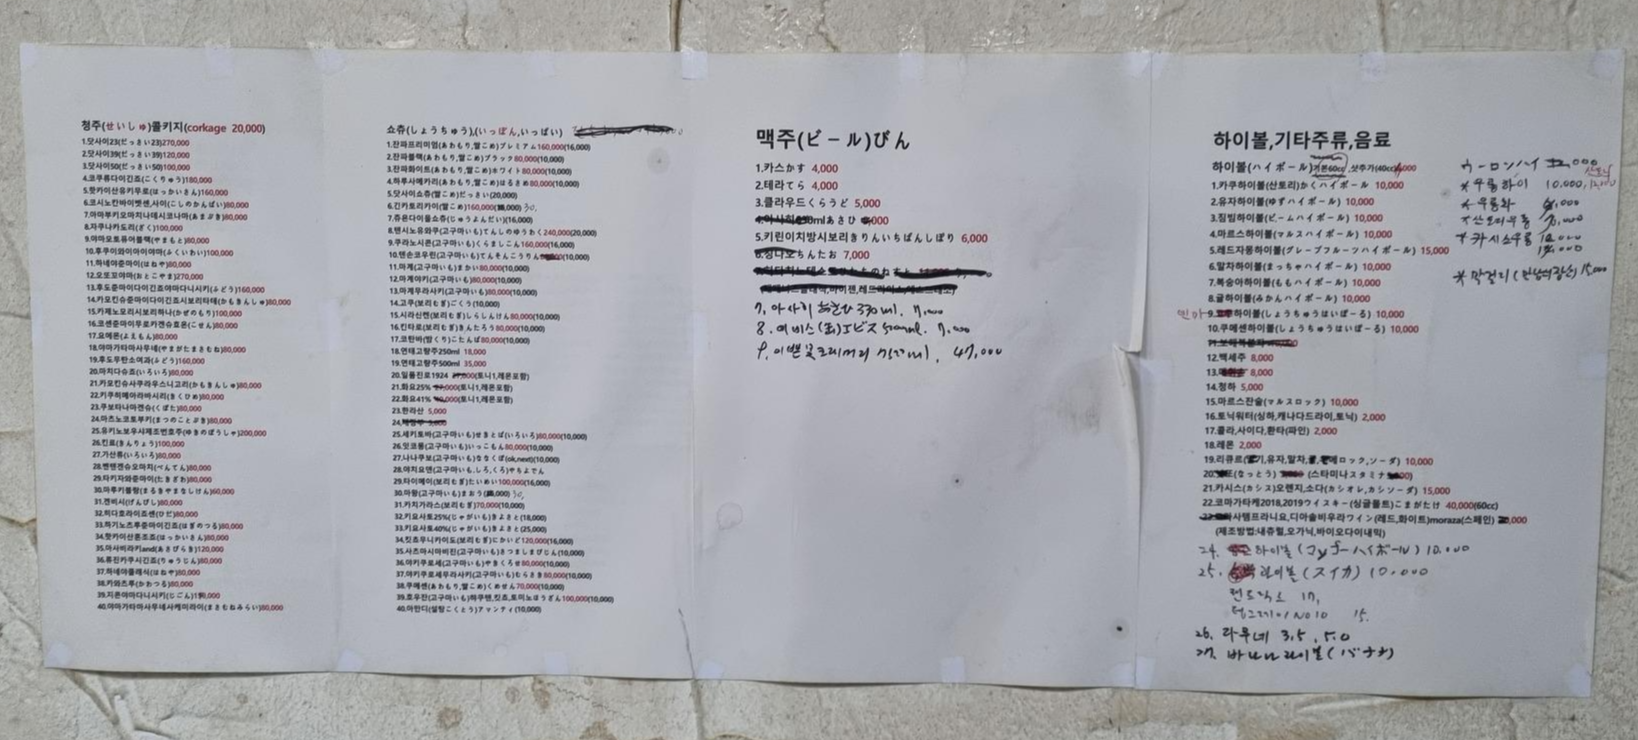 청주(せいしゅ)콜키지(corkage 20,000)
1.닷사이23(だっさい23)270,000
2.닷사이39(だっさい39)120,000
3.닷사이50(だっさい50)100,000
4.코쿠류다이긴죠(こくりゅう)180,000
5.핫카이산유키무로(はっかいさん)160,000
6.코시노칸바이벳센,사이(こしのかんばい)80,000
7.아마부키오마치나데시코나마(あまぶき)80,000
8.자쿠나카도리(ざく)100,000
9.야마모토퓨어블랙(やまもと)80,000
10.후쿠이와이야이야마(ふくいわい)100,000
11.하네야준마이(はねや)80,000
12.오또꼬야마(おとこやま)270,000
13.후도준마이다이긴죠야마다니시키(ふどう)160,000
14.카모킨슈준마이다이긴죠시보리타테(かもきんしゅ)80,000
15.카제노모리시보리하나(かぜのもり)100,000
16.코센준마이무로카겐슈효온(こせん)80,000
17.요에몬(よえもん)80,000
18.야마가타마사무네(やまがたまさむね)80,000
19.후도무탄소여과(ふどう)160,000
20.마치다슈죠(いろいろ)80,000
21.카모킨슈사쿠라우스니고리(かもきんしゅ)80,000
22.키쿠히메야라바시리(きくひめ)80,000
23.쿠보타나마겐슈(くぼた)80,000
24.마츠노코토부키(まつのことぶき)80,000
25.유키노보우샤제조번호주(ゆきのぼうしゃ)200,000
26.킨료(きんりょう)100,000
27.가산류(いろいろ)80,000
28.벤텐겐슈오마치(べんてん)80,000
29.타키자와준마이(たきざわ)80,000
30.마루키불량(まるきやまなしけん)60,000
31.겐비시(げんびし)80,000
32.히다호라이죤센(ひだ)80,000
33.하기노츠루준마이긴죠(はぎのつる)80,000
34.핫카이산톤조죠(はっかいさん)80,000
35.아사비라키and(あさびらき)120,000
36.류진카쿠시긴죠(りゅうじん)80,000
37.하네야플래식(はねや)80,000
38.카와츠루(かわつる)80,000
39.지콘야마다니시키(じごん)
40.야마가타마사무네사케미라이(まさむねみらい)80,000
쇼츄(しょうちゅう),(いっぽん,いっぱい)
1.잔파프리미엄(あわもり,쌀こめ)プレミアム160,000(16,000)
2.잔파블랙(あわもり,쌀こめ)ブラック80,000(10,000)
3.잔파화이트(あわもり,쌀こめ)ホワイト80,000(10,000)
4.하루사메카리(あわもり,쌀こめ)はるさめ80,000(10,000)
5.닷사이쇼츄(쌀こめ)だっさい(20,000)
6.긴카토리카이(쌀こめ)160,000
7.쥬욘다이올쇼츄(じゅうよんだい)(16,000)
8.텐시노유와쿠(고구마いも)てんしのゆうわく240,000(20,000)
9.쿠라노시콘(고구마いも)くらましこん160,000(16,000)
10.텐손코우린(고구마いも)てんそんこうりん
11.마게(고구마いも)まかい80,000(10,000)
12.마게야키(고구마いも)80,000(10,000)
13.마게무라사키(고구마いも)80,000(10,000)
14.고쿠(보리むぎ)ごくう(10,000)
15.시라신켄(보리むぎ)しらしんけん80,000(10,000)
16.킨타로(보리むぎ)きんたろう80,000(10,000)
17.코탄바(밤くり)こたんば80,000(10,000)
18.연태고량주250ml 18,000
19.연태고량주500ml 35,000
20.일품진로1924 (토니1,레몬포함)
21.화요25% (토니1,레몬포함)
22.화요41% (토니1,레몬포함)
23.한라산 5,000
24.
25.세키토바(고구마いも)せきとば(いろいろ)80,000(10,000)
26.잇코몽(고구마いも)いっこもん80,000(10,000)
27.나나쿠보(고구마いも)ななくぼ(ok,next)(10,000)
28.야치요덴(고구마いも.しろ,くろ)やちよでん
29.타이메이(보리むぎ)たいめい100,000(16,000)
30.마왕(고구마いも)まおう
31.카치가라스(보리むぎ)70,000(10,000)
32.키요사토25%(じゃがいも)きよさと(18,000)
33.키요사토40%(じゃがいも)きよさと(25,000)
34.킷쵸무니카이도(보리むぎ)にかいど120,000(16,000)
35.사츠마시마비진(고구마いも)さつましまびじん(10,000)
36.야키쿠로세(고구마いも)やきくろせ80,000(10,000)
37.야키쿠로세무라사키(고구마いも)むらさき80,000(10,000)
38.쿠메센(あわもり,쌀こめ)くめせん70,000(10,000)
39.호우잔(고구마いも)하쿠텐,킷쵸,토미노ほうざん100,000(10,000)
40.아만디(설탕こくとう)アマンティ(10,000)
맥주(ビール)びん
1.카스かす 4,000
2.테라てら 4,000
3.클라우드くらうど 5,000
5.키린이치방시보리きりんいちばんしぼり 6,000
6.칭다오ちんたお 7,000
7. 아사히 あさひ 330ml. 7,000
8. 에비스(유)エビス 500ml. 7,000
하이볼,기타주류,음료
하이볼(ハイボール)기본60cc,샷추가(40cc)
1.카쿠하이볼(산토리)かくハイボール 10,000
2.유자하이볼(ゆずハイボール) 10,000
3.짐빔하이볼(ビームハイボール) 10,000
4.마르스하이볼(マルスハイボール) 10,000
5.레드자몽하이볼(グレープフルーツハイボール) 15,000
6.말차하이볼(まっちゃハイボール) 10,000
7.복숭아하이볼(ももハイボール) 10,000
8.귤하이볼(みかんハイボール) 10,000
9.하이볼(しょうちゅうはいぼーる) 10,000
10.쿠메센하이볼(しょうちゅうはいぼーる) 10,000
12.백세주 8,000
13. 8,000
14.청하 5,000
15.마르스잔술(マルスロック) 10,000
16.토닉워터(싱하,캐나다드라이,토닉) 2,000
17.콜라,사이다,환타(파인) 2,000
18.레몬 2,000
19.리큐르(딸기,유자,말차,귤,ロック,ソーダ) 10,000
20.(なっとう) (스타미나スタミナ)
21.카시스(カシス)오렌지,소다(カシオレ,カシソーダ) 15,000
22.코마가타케2018,2019ウイスキー(싱글몰트)こまがたけ 40,000(60cc)
템프라니요,디아솔비우라ワイン(레드,화이트)moraza(스페인)
(제조방법:내츄럴,오가닉,바이오다이내믹)
24. 하이볼(コッテーハイボール) 10,000
25. 하이볼(スイカ) 10,000
26. 라무네 3.5, 5.0
27. 바나나하이볼(バナナ)
ウーロンハイ
*우롱하이 10,000
*우롱차
*카시스우롱
*막걸리 15,000